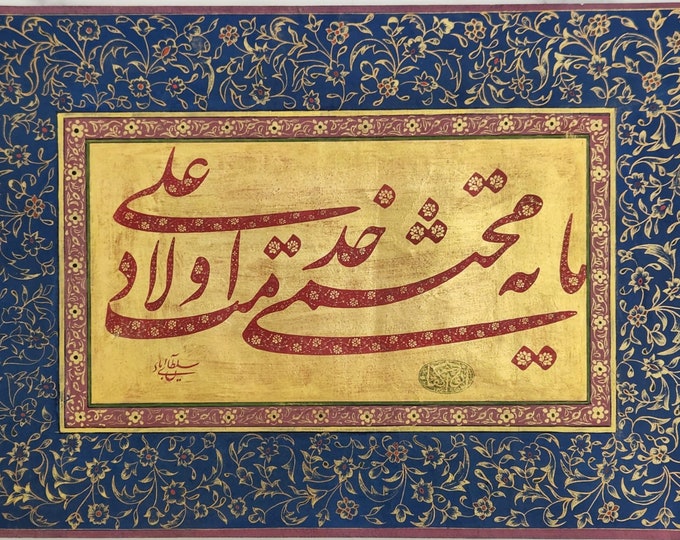 مایه محتشمی خدمت اولاد علی